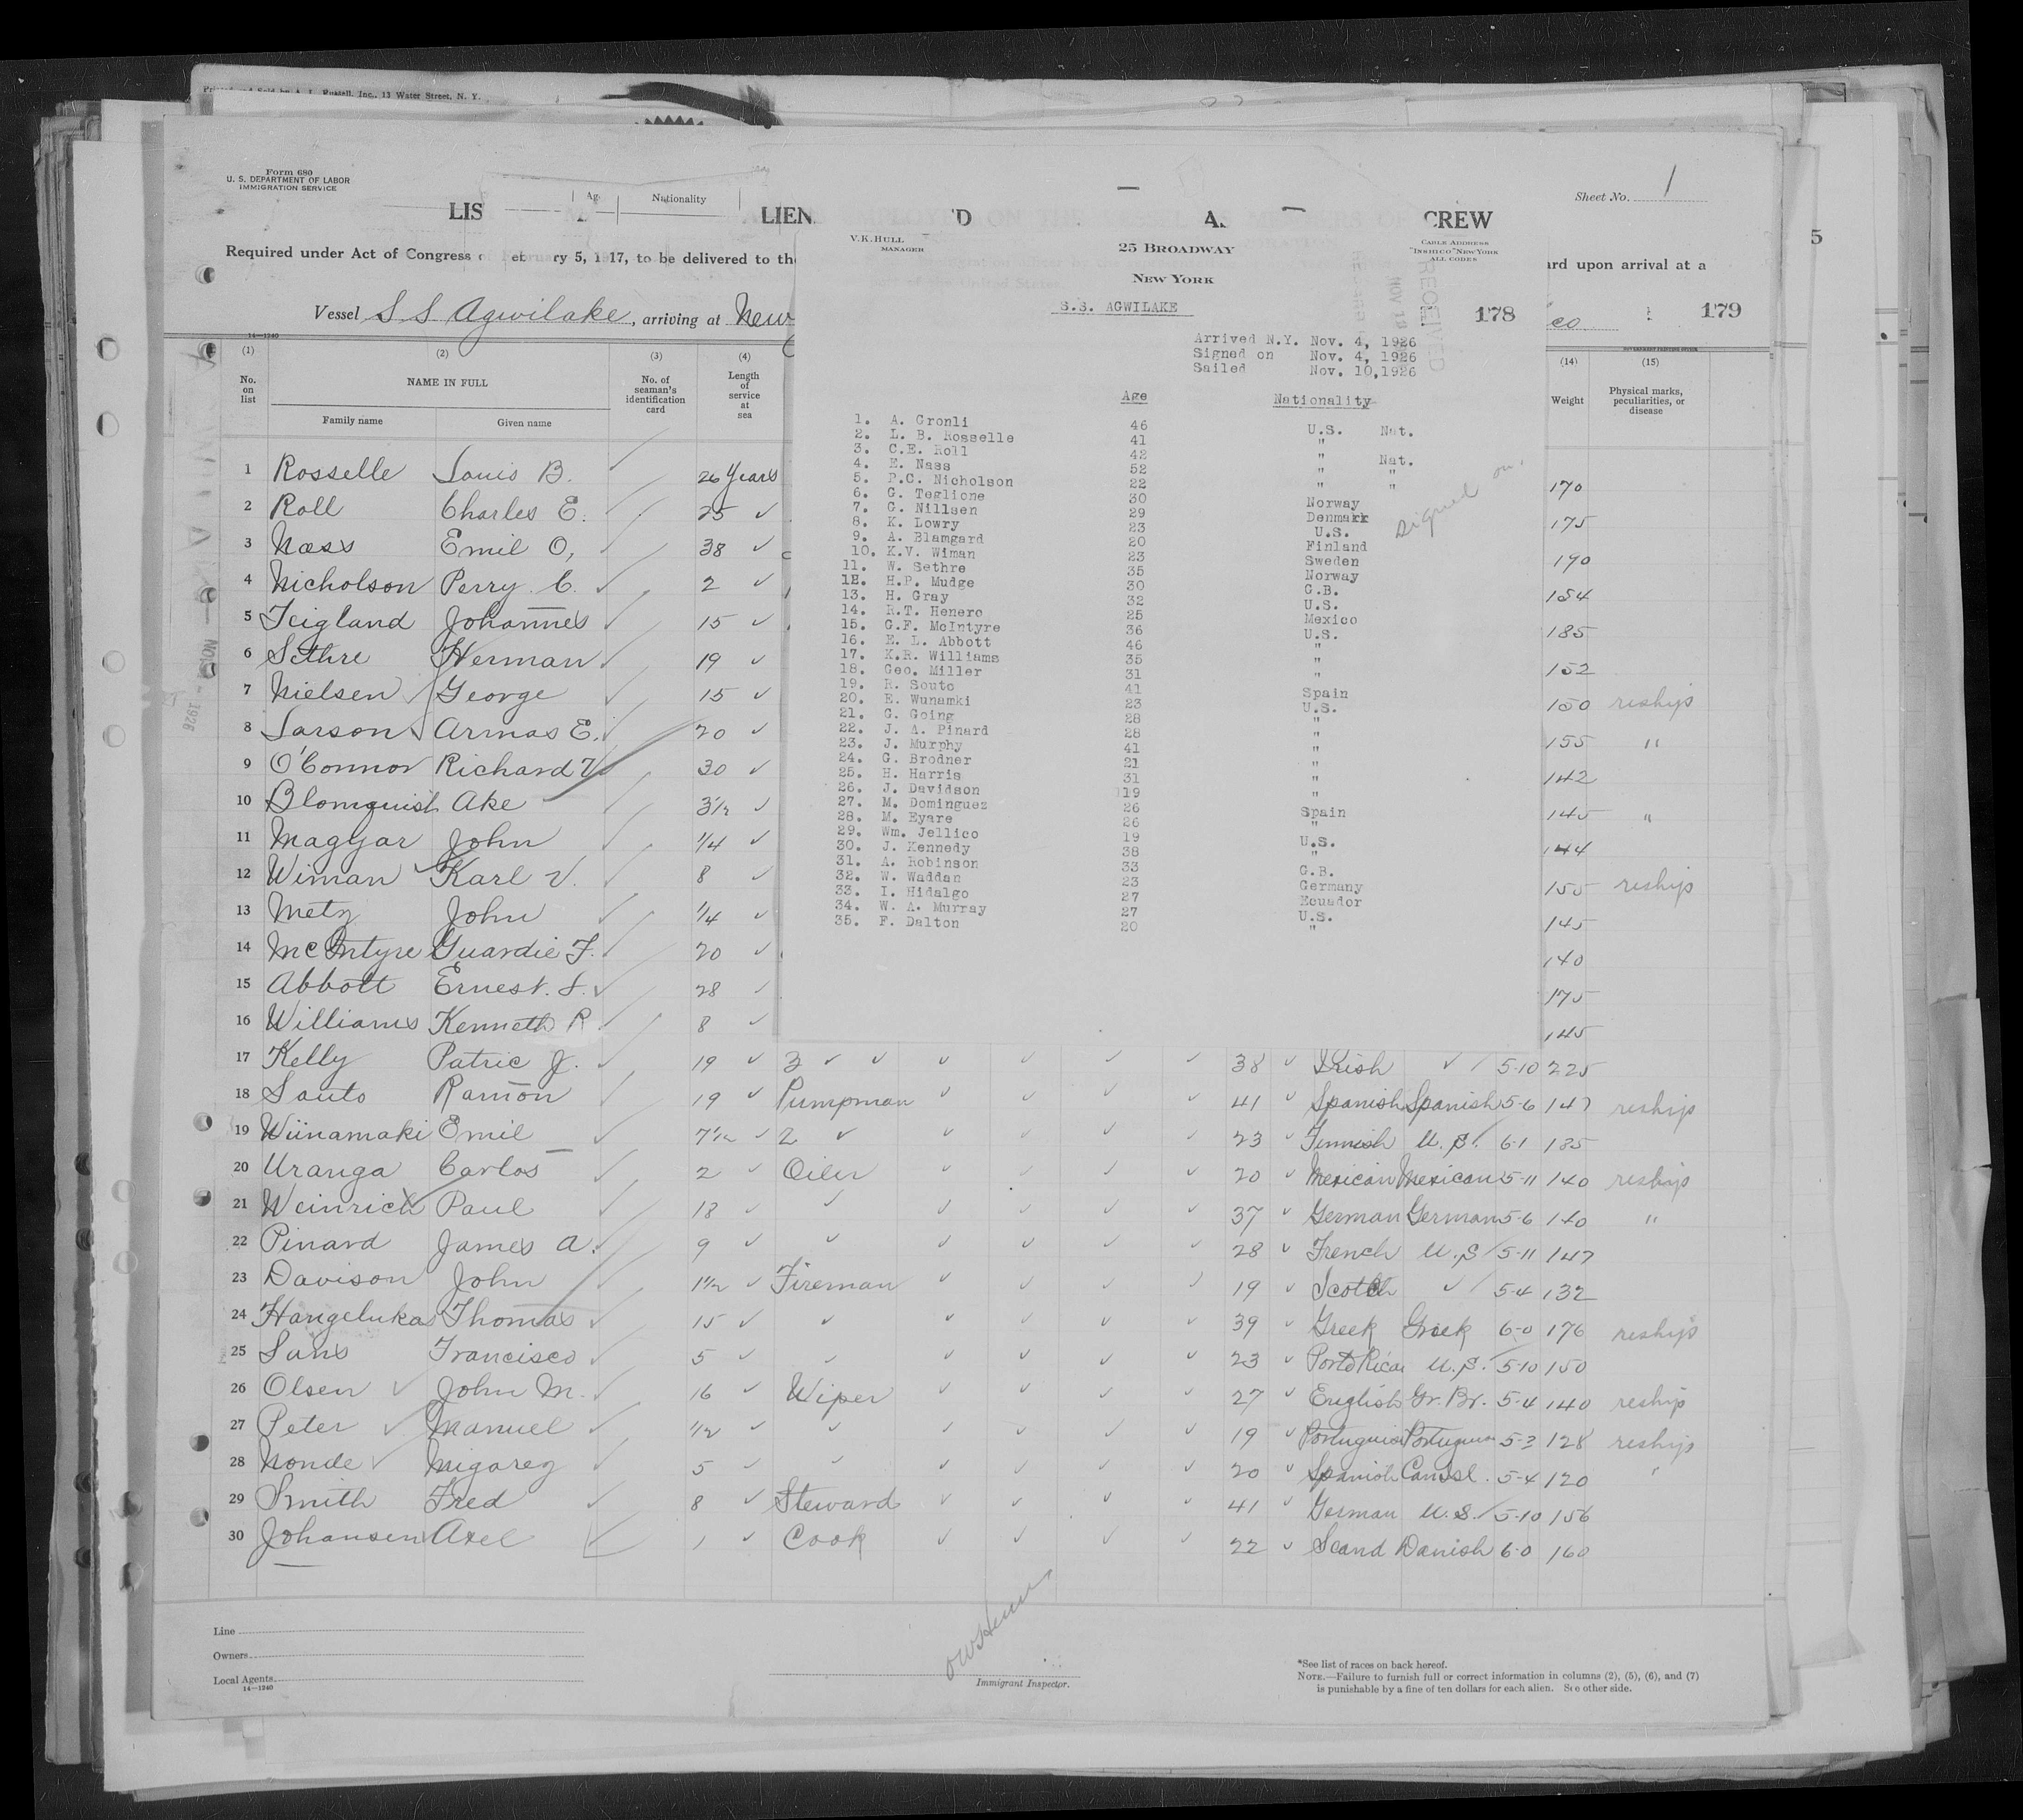 Form 680
U. S. DEPARTMENT OF LABOR
IMMIGRATION SERVICE
Nationality
Sheet No. 1
LIS LIEN D A CREW
Required under Act of Congress of February 5, 1917, to be delivered to the
ard upon arrival at a
Vessel S S Agwilake, arriving at New
co
179
V.K. HULL
MANAGER
25 BROADWAY
NEW YORK
CABLE ADDRESS
ALL CODES
RECEIVED
S.S. AGWILAKE
178
Arrived N.Y. Nov. 4, 1926
Signed on Nov. 4, 1926
Sailed Nov. 10, 1926
Age Nationality
1. A. Gronli 46 U.S. Nat.
2. L. B. Rosselle 41 "
3. C.E. Roll 42 " Nat.
4. E. Nass 52 " "
5. P.C. Nicholson 22 " "
6. G. Teglione 30 Norway
7. G. Nillsen 29 Denmark
8. K. Lowry 23 U.S.
9. A. Blamgard 20 Finland
10. K.V. Wiman 23 Sweden
11. W. Sethre 35 Norway
12. H.P. Mudge 30 G.B.
13. H. Gray 32 U.S.
14. R.T. Henero 25 Mexico
15. G.F. McIntyre 36 U.S.
16. E. L. Abbott 46 "
17. K.R. Williams 35 "
18. Geo. Miller 31 "
19. R. Souto 41 Spain
20. E. Wunamki 23 U.S.
21. G. Going 28 "
22. J. A. Pinard 28 "
23. J. Murphy 41 "
24. G. Brodner 21 "
25. H. Harris 31 "
26. J. Davidson 19 "
27. M. Dominguez 26 Spain
28. M. Eyare 26 "
29. Wm. Jellico 19 U.S.
30. J. Kennedy 38 "
31. A. Robinson 33 G.B.
32. W. Waddan 23 Germany
33. I. Hidalgo 27 Ecuador
34. W. A. Murray 27 U.S.
35. F. Dalton 20 "
signed on.
(1) (2) (3) (4) (14) (15)
No. on list
NAME IN FULL
Family name Given name
No. of seaman's identification card
Length of service at sea
Weight
Physical marks, peculiarities, or disease
1 Rosselle Louis B. 26 Years 170
2 Roll Charles E. 25 ✓ 175
3 Nass Emil O, 38 ✓ 190
4 Nicholson Perry C. 2 ✓ 184
5 Teigland Johannes 15 ✓ 185
6 Sethre Herman 19 ✓ 152
7 Nielsen George 15 ✓ 150 reships
8 Larson Armas E. 20 ✓ 155 "
9 O'Connor Richard V 30 ✓ 142
10 Blomquist Ake 3½ ✓ 145 "
11 Magyar John ¼ ✓ 144
12 Wiman Karl V. 8 ✓ 155 reships
13 Metz John ¼ ✓ 145
14 McIntyre Guardie F. 20 ✓ 140
15 Abbott Ernest. L. 28 ✓ 175
16 Williams Kenneth R 8 ✓ 145
17 Kelly Patric J. 19 ✓ 3 ✓ ✓ 38 ✓ Irish ✓ 5-10 225
18 Souto Ramon 19 ✓ Pumpman 41 ✓ Spanish Spanish 5-6 147 reships
19 Wiinamaki Emil 7½ ✓ 2 ✓ 23 ✓ Finnish U.S. 6-1 185
20 Uranga Carlos 2 ✓ Oiler 20 ✓ Mexican Mexican 5-11 140 reships
21 Weinrich Paul 18 ✓ ✓ 37 ✓ German German 5-6 140 "
22 Pinard James A. 9 ✓ ✓ 28 ✓ French U.S 5-11 147
23 Davison John 1½ ✓ Fireman 19 ✓ Scotch ✓ 5-4 132
24 Hangelukas Thomas 15 ✓ ✓ 39 ✓ Greek Greek 6-0 176 reships
25 Sans Francisco 5 ✓ ✓ 23 ✓ Porto Rican U.S. 5-10 150
26 Olsen John M. 16 ✓ Wiper 27 ✓ English Gr. Br. 5-4 140 reships
27 Peter Manuel ½ ✓ ✓ 19 ✓ Portuguese Portuguese 5-3 128 reships
28 Nonde Migarez 5 ✓ ✓ 20 ✓ Spanish 5-4 120 "
29 Smith Fred 8 ✓ Steward 41 ✓ German U.S. 5-10 156
30 Johansen Axel 1 ✓ Cook 22 ✓ Scand Danish 6-0 160
Line
Owners
Local Agents
14—1240
Immigrant Inspector.
*See list of races on back hereof.
NOTE.—Failure to furnish full or correct information in columns (2), (5), (6), and (7)
is punishable by a fine of ten dollars for each alien. See other side.